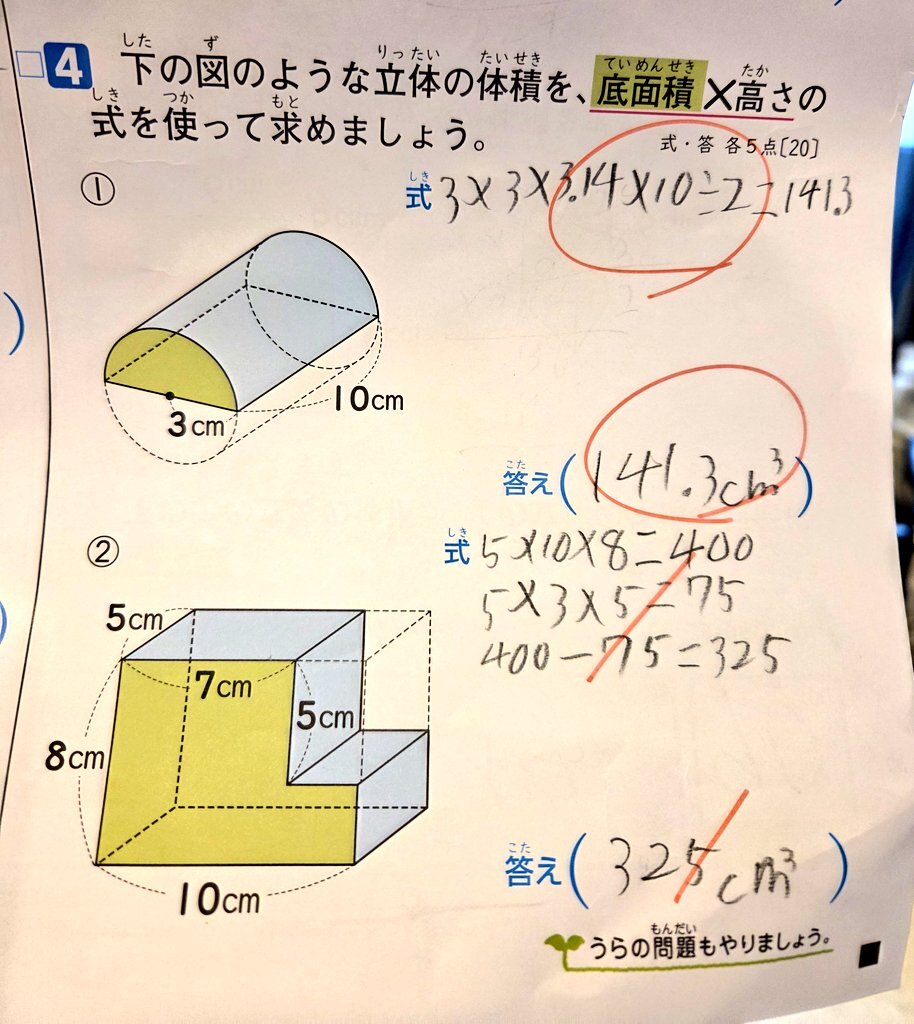 4 下の図のような立体の体積を、底面積×高さの
式を使って求めましょう。
式・答 各5点[20]
①
式 3×3×3.14×10÷2=141.3
10cm
3cm
答え(141.3cm³)
②
式 5×10×8=400
5×3×5=75
400-75=325
5cm
7cm
5cm
8cm
10cm
答え(325cm³)
うらの問題もやりましょう。